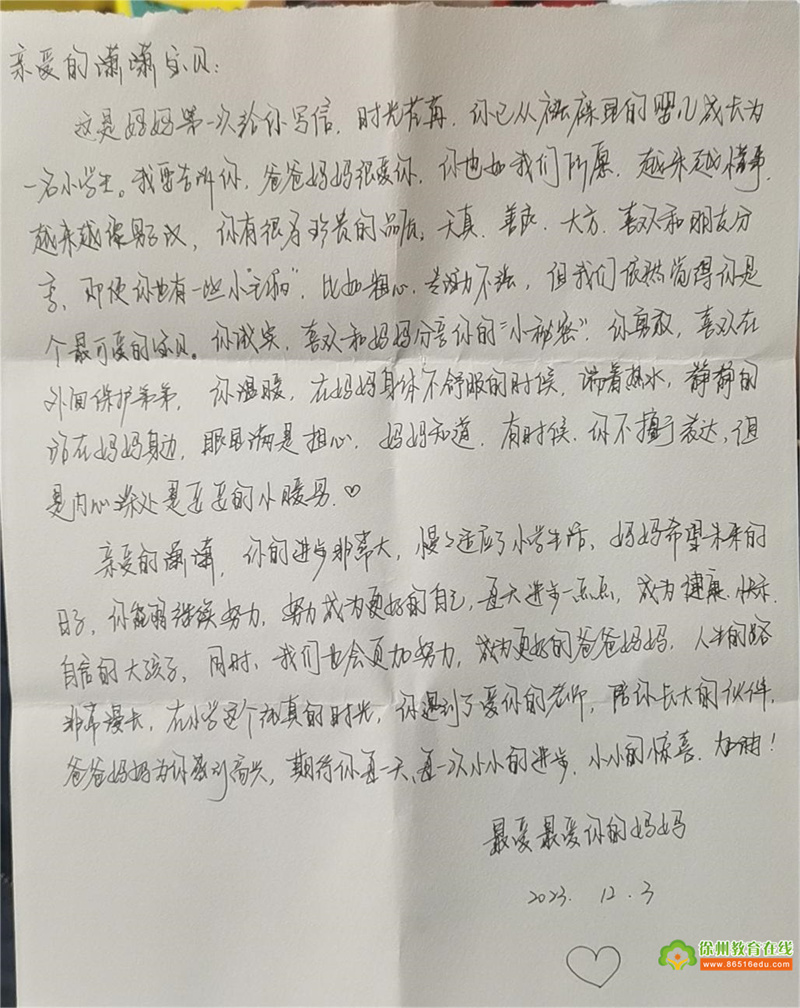 亲爱的潇潇宝贝:
这是妈妈第一次给你写信,时光荏苒,你已从襁褓里的婴儿成长为
一名小学生。我要告诉你,爸爸妈妈很爱你,你也如我们所愿,越来越懂事,
越来越像男子汉,你有很多珍贵的品质,天真、善良、大方、喜欢和朋友分
享,即使你也有一些小"毛病",比如粗心、专注力不强,但我们依然觉得你是
个最可爱的宝贝。你诚实,喜欢和妈妈分享你的"小秘密",你勇敢,喜欢在
外面保护弟弟,你温暖,在妈妈身体不舒服的时候,端着热水,静静的
站在妈妈身边,眼里满是担心,妈妈知道,有时候,你不擅于表达,但
是内心深处是妥妥的小暖男.♡
亲爱的潇潇,你的进步非常大,慢慢适应了小学生活,妈妈希望未来的
日子,你能够继续努力,努力成为更好的自己,每天进步一点点,成为健康、快乐、
自信的大孩子,同时,我们也会更加努力,成为更好的爸爸妈妈,人生的路
非常漫长,在小学这个纯真的时光,你遇到了爱你的老师,陪你长大的伙伴,
爸爸妈妈为你感到高兴,期待你每一天、每一次小小的进步,小小的惊喜.加油!
最爱最爱你的妈妈
2023. 12. 3
徐州教育在线
www.86516edu.com